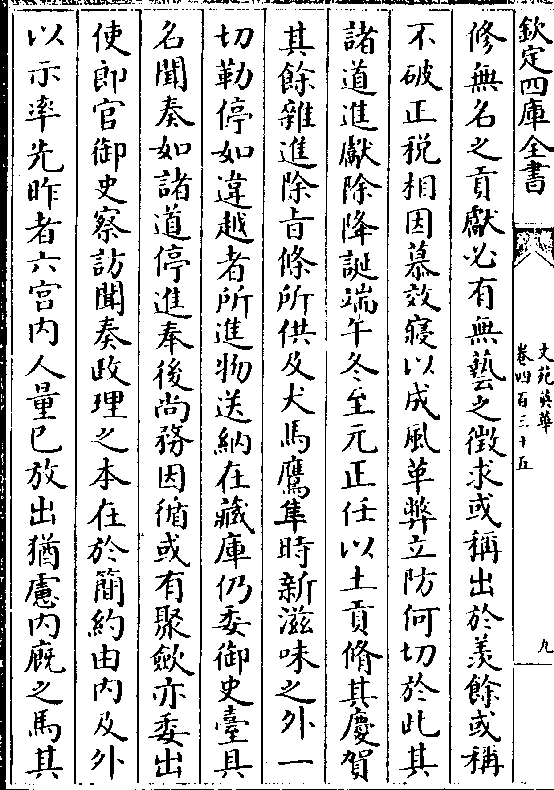 欽定四庫全書
文苑英華
卷四百三十五
九
修無名之貢獻必有無藝之徵求或稱出於羨餘或稱
不破正税相因慕效寖以成風革弊立防何切於此其
諸道進獻除降誕端午冬至元正任以土貢脩其慶賀
其餘雜進除旨條所供及犬馬鷹隼時新滋味之外一
切勒停如違越者所進物送納在藏庫仍委御史臺具
名聞奏如諸道停進奉後尚務因循或有聚斂亦委出
使郎官御史察訪聞奏政理之本在於簡約由内及外
以示率先昨者六宫内人量已放出猶慮内厩之馬其